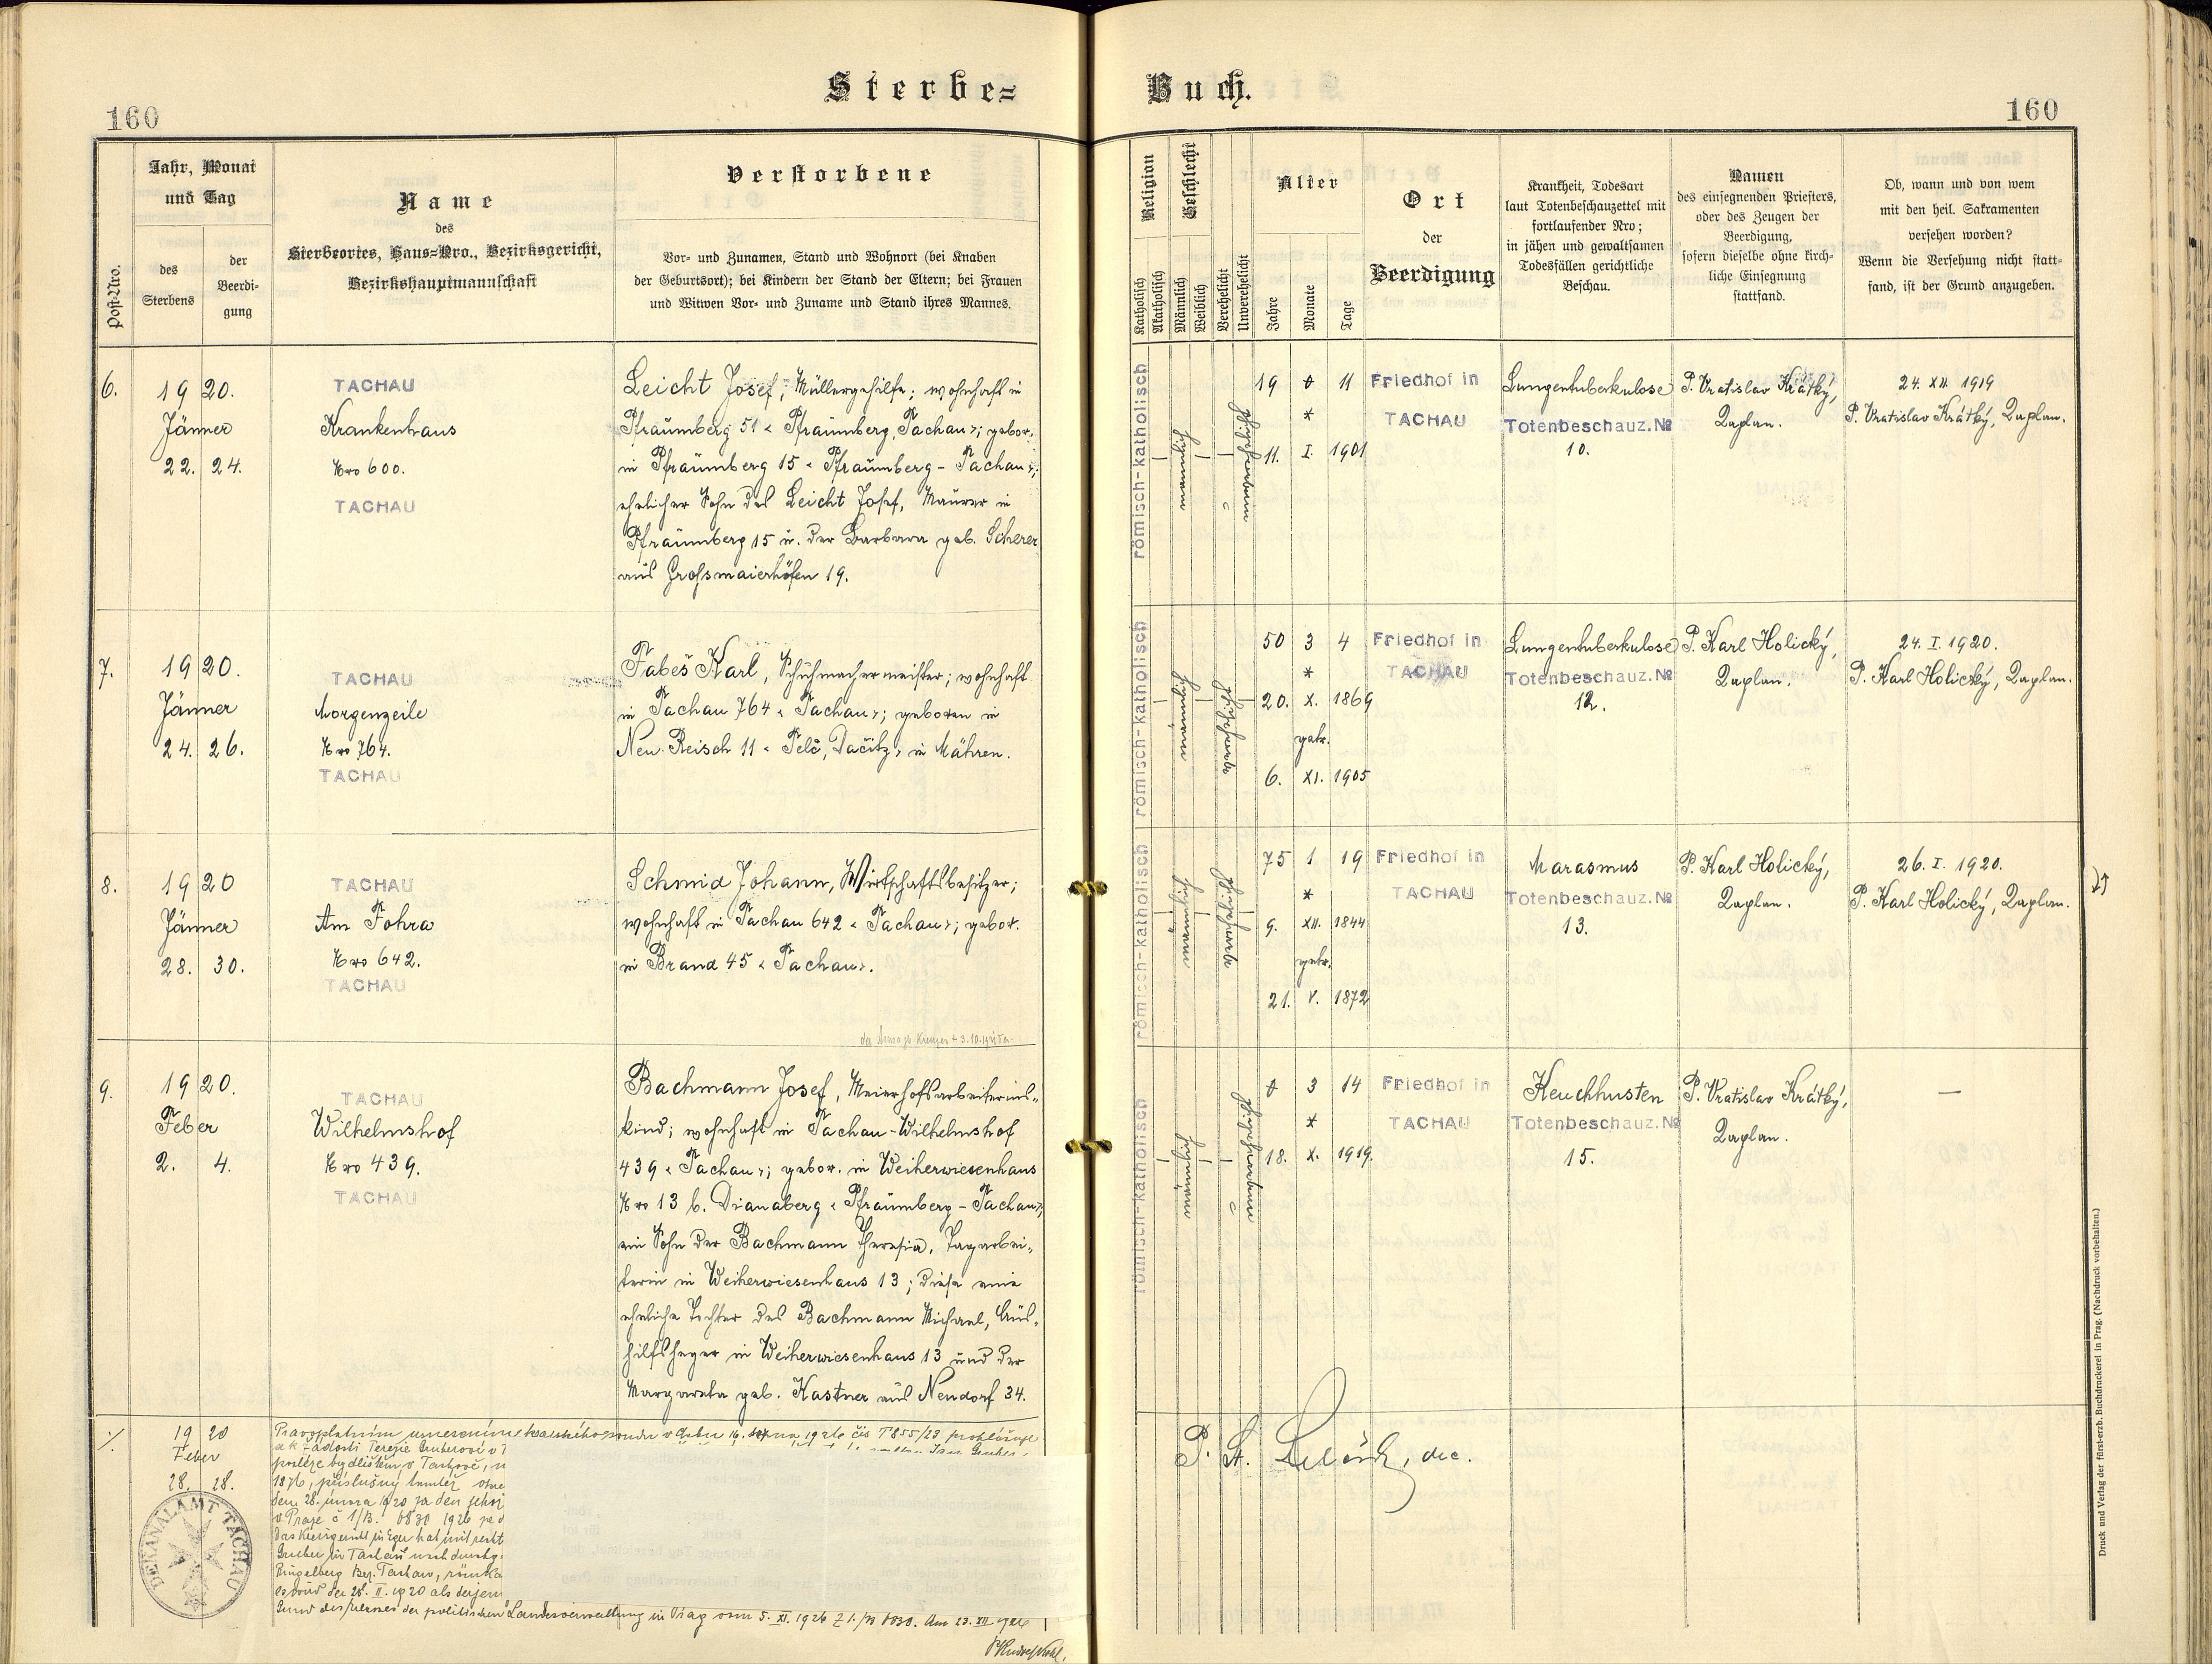 Sterbe=
Buch.
160
160
Post-Nro.
Jahr, Monat
und Tag
des
Sterbens
der
Beerdi-
gung
Name
des
Sterbeortes, Haus=Nro., Bezirksgericht,
Bezirkshauptmannschaft
Verstorbene
Vor- und Zunamen, Stand und Wohnort (bei Knaben
der Geburtsort); bei Kindern der Stand der Eltern; bei Frauen
und Witwen Vor- und Zuname und Stand ihres Mannes.
Religion
Geschlecht
Katholisch
Akatholisch
Männlich
Weiblich
Verehelicht
Unverehelicht
Alter
Jahre
Monate
Tage
Ort
der
Beerdigung
Krankheit, Todesart
laut Totenbeschauzettel mit
fortlaufender Nro;
in jähen und gewaltsamen
Todesfällen gerichtliche
Beschau.
Namen
des einsegnenden Priesters,
oder des Zeugen der
Beerdigung,
sofern dieselbe ohne kirch-
liche Einsegnung
stattfand.
Ob, wann und von wem
mit den heil. Sakramenten
versehen worden?
Wenn die Versehung nicht statt-
fand, ist der Grund anzugeben.
6.
1920.
Jänner
22. 24.
TACHAU
Krankenhaus
Nro 600.
TACHAU
Leicht Josef, Müllergehilfe; wohnhaft in
Pfraumberg 51 < Pfraumberg, Tachau >; gebor.
in Pfraumberg 15 < Pfraumberg - Tachau >;
ehelicher Sohn des Leicht Josef, Maurer in
Pfraumberg 15 u. der Barbara geb. Scherer
aus Großmaierhöfen 19.
römisch-katholisch
männlich
unverehelicht
19 0 11
*
11. I. 1901
Friedhof in
TACHAU
Lungentuberkulose
Totenbeschauz. №
10.
P. Vratislav Krátký,
Kaplan.
24. XII. 1919
P. Vratislav Krátký, Kaplan.
7.
1920.
Jänner
24. 26.
TACHAU
Morgenzeile
Nro 764.
TACHAU
Fabeš Karl, Schuhmachermeister; wohnhaft
in Tachau 764 < Tachau >; geboren in
Neu-Reisch 11 < Telč, Dačitz > in Mähren.
römisch-katholisch
männlich
verehelicht
50 3 4
*
20. X. 1869
getr.
6. XI. 1905
Friedhof in
TACHAU
Lungentuberkulose
Totenbeschauz. №
12.
P. Karl Holický,
Kaplan.
24. I. 1920.
P. Karl Holický, Kaplan.
8.
1920
Jänner
28. 30.
TACHAU
Am Fohra
Nro 642.
TACHAU
Schmid Johann, Wirtschaftsbesitzer;
wohnhaft in Tachau 642 < Tachau >; gebor.
in Brand 45 < Tachau >.
römisch-katholisch
männlich
verehelicht
75 1 19
*
9. XII. 1844
getr.
21. V. 1872
Friedhof in
TACHAU
Marasmus
Totenbeschauz. №
13.
P. Karl Holický,
Kaplan.
26. I. 1920.
P. Karl Holický, Kaplan.
9.
1920.
Feber
2. 4.
TACHAU
Wilhelmshof
Nro 439.
TACHAU
Bachmann Josef, Meierhofsarbeiterins-
kind; wohnhaft in Tachau-Wilhelmshof
439 < Tachau >; gebor. in Weiherwiesenhaus
Nro 13 b. Dianaberg < Pfraumberg - Tachau >;
ein Sohn der Bachmann Theresia, Tagarbei-
terin in Weiherwiesenhaus 13; diese eine
eheliche Tochter des Bachmann Michael, Aus-
hilfsheger in Weiherwiesenhaus 13 und der
Margareta geb. Kastner aus Neudorf 34.
römisch-katholisch
männlich
unverehelicht
0 3 14
*
18. X. 1919.
Friedhof in
TACHAU
Keuchhusten
Totenbeschauz. №
15.
P. Vratislav Krátký,
Kaplan.
—
1920
Feber
28. 28.
Pravoplatním usnesením krajského soudu v Chebu 16. srpna 1926 čís T 855/23 prohlašuje
k žádosti Terezie Gruberové v T
posléze bydlištěm v Tachově, n
1876, příslušný tamtéž
den 28. února 1920 za den jehož
v Praze č 1/B. 1926
das Kreisgericht in Eger hat mit
Gruber in Tachau
Ringelberg Bez. Tachau,
es wird der 28. II. 1920 als derjen
Grund des Erlasses der politischen Landesverwaltung in Prag vom 5. XI. 1926 Z 1./B 8830. Am 23. XII. 1926
DEKANALAMT TACHAU
P. St.
dec.
Druck und Verlag der fürst-erzb. Buchdruckerei in Prag. (Nachdruck vorbehalten.)